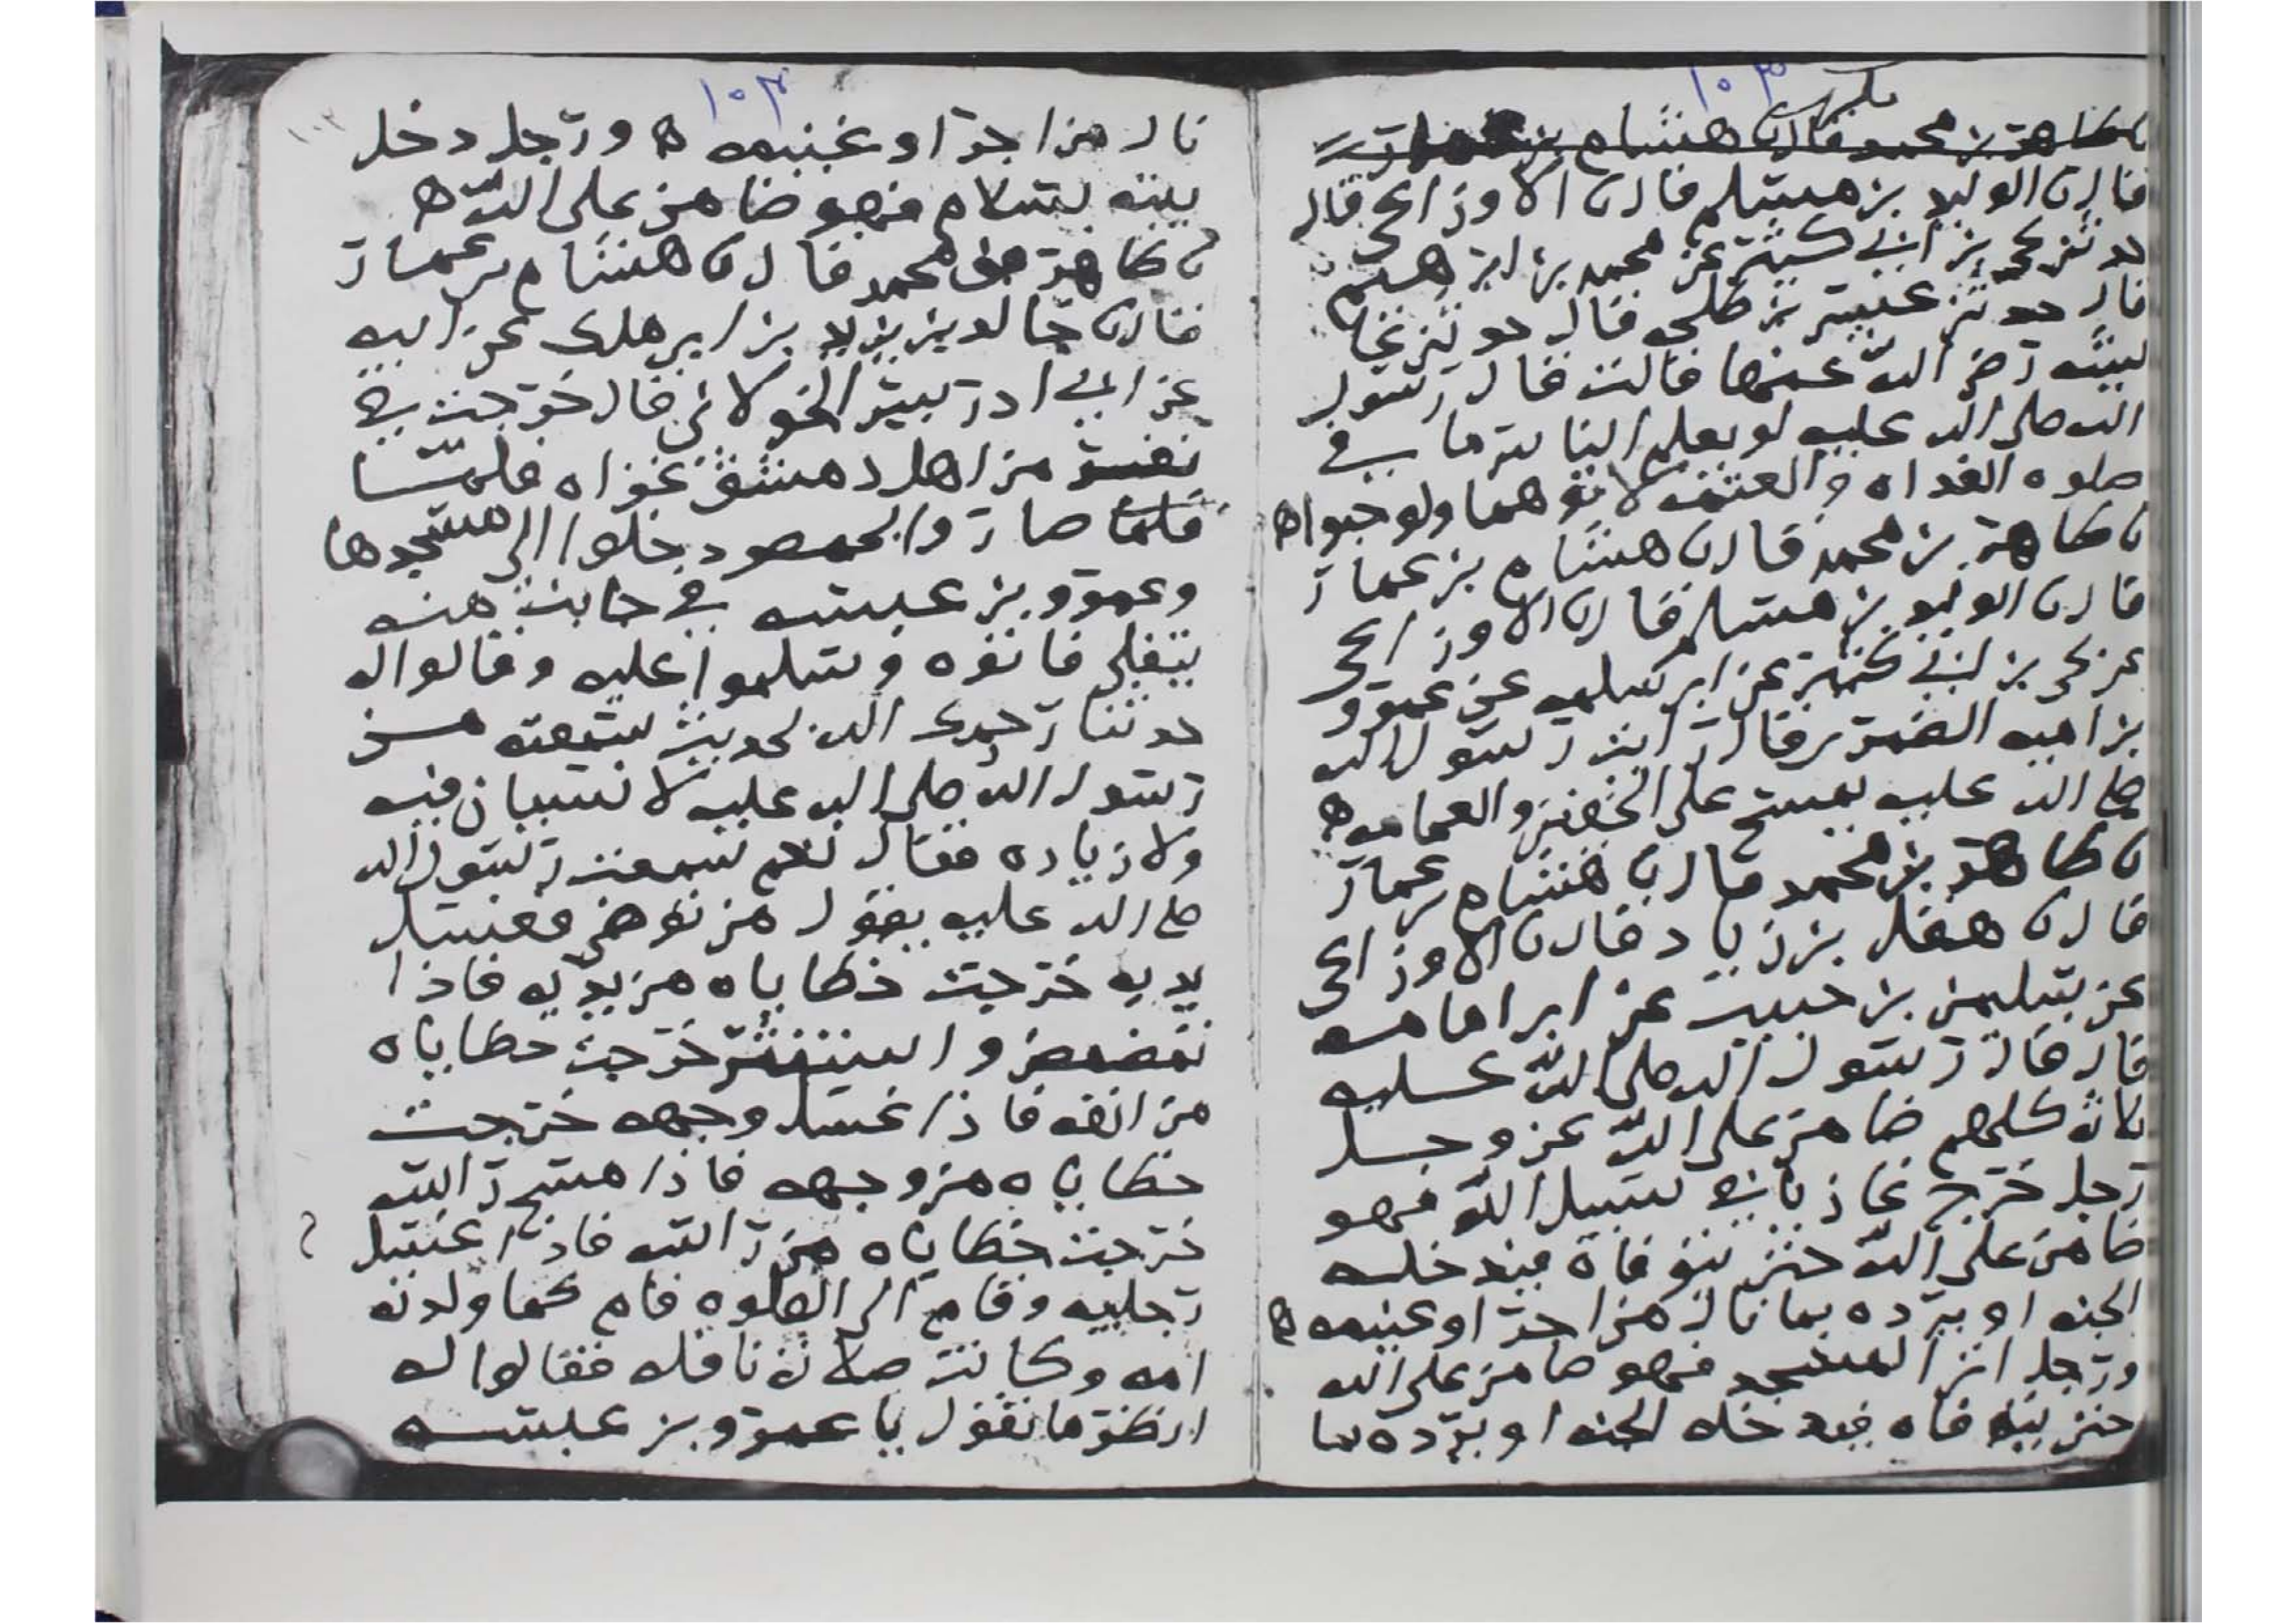 ١٠٣
مكرر
نا طاهر بن محمد قال نا هشام بن عمار
قال نا الوليد بن مسلم قال نا الاوزاعي قال
حدثني يحيى بن ابي كثير عن محمد بن ابرهيم
قال حدثني عيسى بن طلحه قال حدثتني عا
ئيشه رضي الله عنها قالت قال رسول
الله صلى الله عليه لو يعلم الناس ما في
صلوه الغداه والعتمه لاتوهما ولو حبوا ه
نا طاهر بن محمد قال نا هشام بن عمار
قال نا الوليد بن مسلم قال نا الاوزاعي
عن يحيى بن ابي كثير عن ابي سلمه عن عمرو
بن اميه الضمري قال رايت رسول الله
صلى الله عليه يمسح على الخفين والعمامه ه
نا طاهر بن محمد قال نا هشام بن عمار
قال نا هقل بن زياد قال نا الاوزاعي
عن سليمن بن حبيب عن ابي امامه
قال قال رسول الله صلى الله عليه
ثلاثة كلهم ضامن على الله عز وجل
رجل خرج غازيا في سبيل الله فهو
ضامن على الله حتى يتوفاه فيدخله
الجنه او يرده بما نال من اجر او غنيمه ه
ورجل اتى المسجد فهو ضامن على الله
حتى يتوفاه فيدخله الجنه او يرده بما
١٠٣
نال من اجر او غنيمه ه ورجل دخل
بيته بسلام فهو ضامن على الله ه
نا طاهر بن محمد قال نا هشام بن عمار
قال نا خالد بن يزيد بن ابي ملك عن ابيه
عن ابي ادريس الخولاني قال خرجت في
نفر من اهل دمشق غزاه فلمّا
فلما صاروا بحمص دخلوا الى مسجدها
وعمرو بن عبسه في جانب منه
يتفلى فاتوه وسلموا عليه وقالوا له
حدثنا رحمك الله بحديث سمعته من
رسول الله صلى الله عليه لا نسيان فيه
ولا زياده فقال نعم سمعت رسول الله
صلى الله عليه يقول من توضى فغسل
يديه خرجت خطاياه من يديه فاذا
تمضمض واستنثر خرجت خطاياه
من انفه فاذا غسل وجهه خرجت
خطاياه من وجهه فاذا مسح راسه
خرجت خطاياه من راسه فاذا غسل
رجليه وقام الى الصلوه قام كما ولدته
امه وكانت صلاته نافله فقالوا له
انظر ما تقول يا عمرو بن عبسه